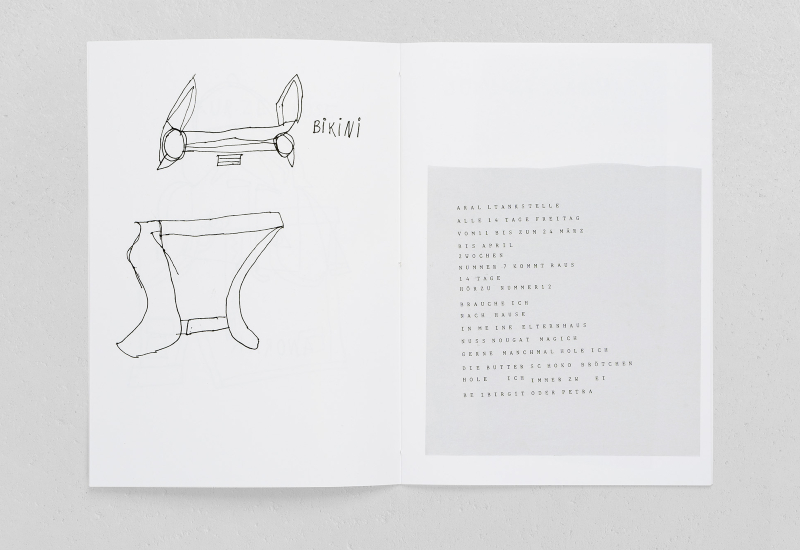 BIKINI
ARAL LTANKSTELLE
ALLE 14 TAGE FREITAG
VOM11 BIS ZUM 24 MÄRZ
BIS APRIL
2WOCHEN
NUMMER 7 KOMMT RAUS
14 TAGE
HÖRZU NUMMER12
BRAUCHE ICH
NACH HAUSE
IN ME INE ELTERNHAUS
NUSS NOUGAT MAGICH
GERNE MANCHMAL HOLE ICH
DIE BUTTER SC HOKO BRÖTCHEN
HOLE ICH IMMER ZW EI
BE IBIRGIT ODER PETRA